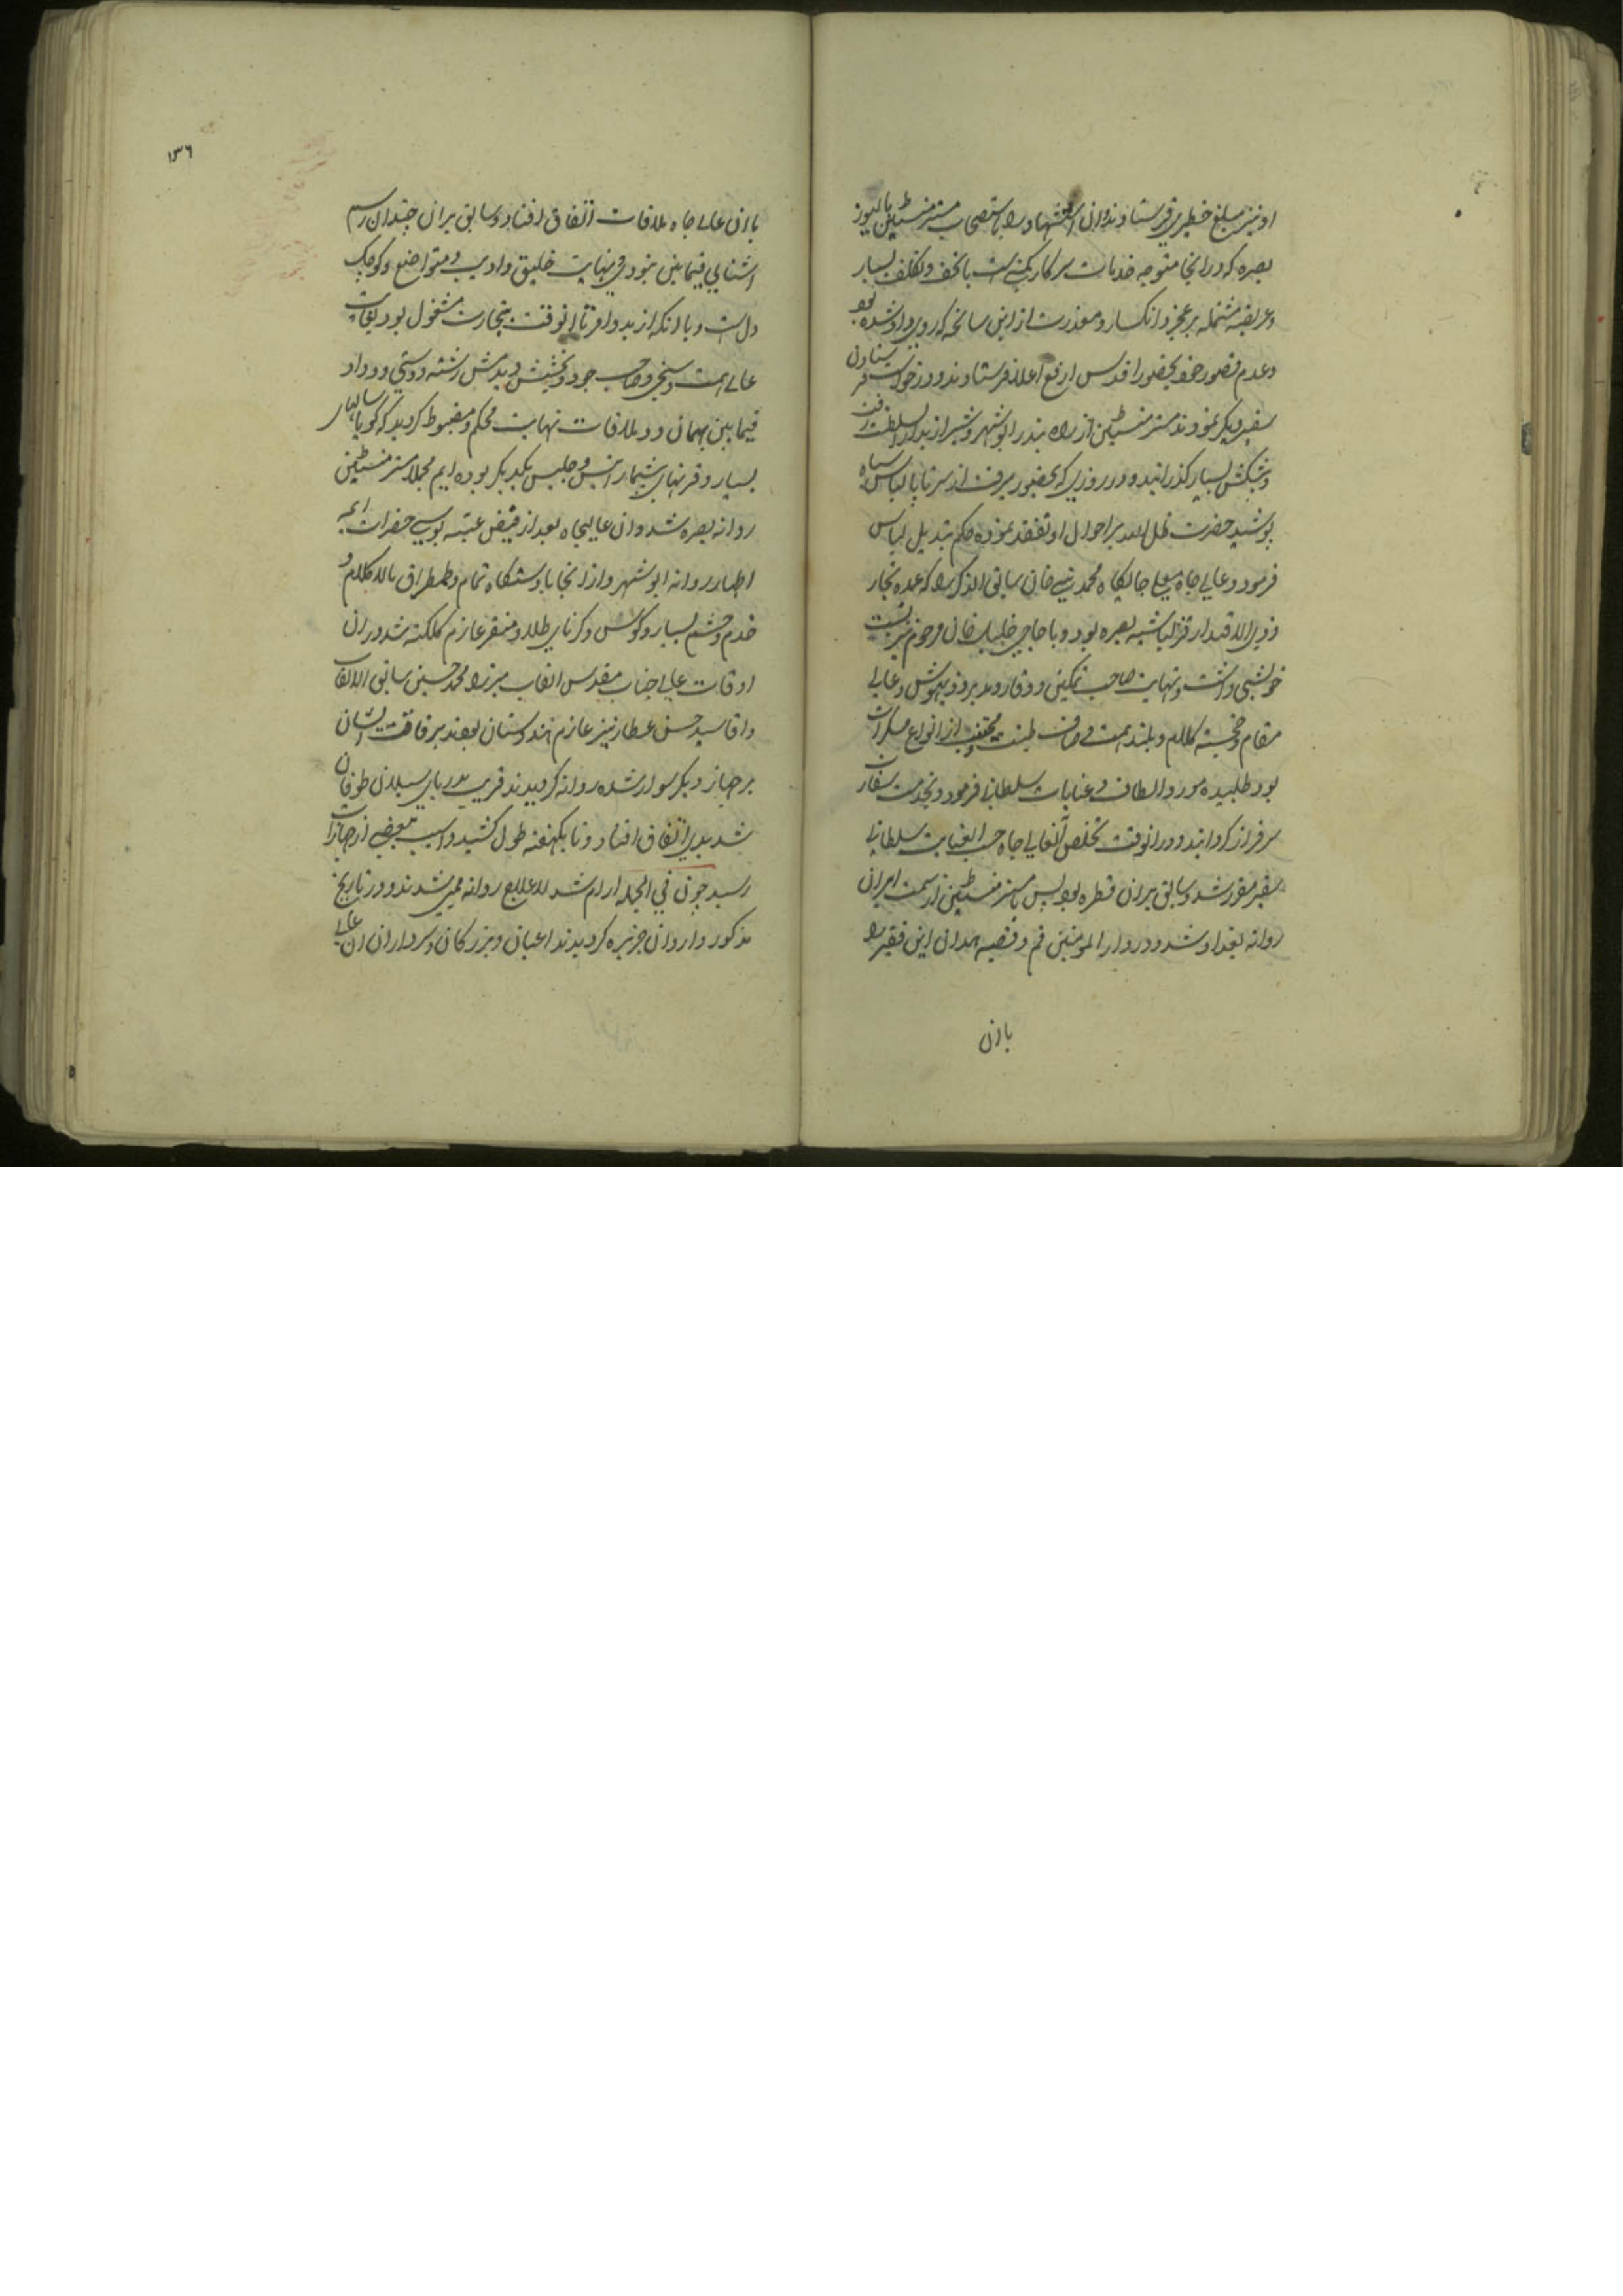 او نیز مبلغ خطیری فرستادند و ان را باستصحاب مستر منستین بالیوز
بصره که در انجا متوجه خدمات سرکار کمپنی است با تحف و تکلف بسیار
و عریضه مشتمله بر عجز و انکسار و معذرت از این سانحه که روی داد شده بود
و عدم قصور خود بحضور اقدس ارفع اعلا فرستادند و درخواست فرستادن
سفیر دیکر نمودند مستر منستین از راه بندر ابوشهر و شیراز بدار السلطنت رفت
و پیشکش بسیار کذرانید و در روزی که بحضور میرفت از سر تا پا لباس سیاه
پوشید حضرت ظل الله بر احوال او تفقد نموده حکم بتبدیل لباس
فرمود و عالی جاه معلی جایکاه محمد نبی خان سابق الذکر را که عمده تجار
ذوی الاقتدار قزلباشیه بصره بود و با حاجی خلیل خان مرحوم نیز نسبت
خویشی داشت و نهایت صاحب تمکین و وقار و مدبر و ذیهوش و عالی
مقام و خجسته کلام و بلند همت و صاف طینت و مجتنب از انواع مسکرات
بود طلبیده مورد الطاف و عنایات سلطانی فرمود و بخدمت سفارت
سرفراز کردانید و در انوقت تخلص آنعالی جاه حسب العنایت سلطانی
سفیر مقرر شد و سابق بر ان قطره بود پس با مستر منستین از سمت ایران
روانه بغداد شد و در دار المومنین قم و قصبه همدان این فقیر را
بان
۱۳۶
با ان عالی جاه ملاقات اتفاق افتاد و سابق بر ان چندان رسم
اشنایی فیمابین نبود فی نهایت خلیق و ادیب و متواضع و کوچک
دل است و با انکه از بدو امر تا انوقت بتجارت مشغول بود بغایت
عالی همت و سخی و صاحب جود و بخشش دیدمش رشته دوستی و وداد
فیمابین بهمان دو ملاقات نهایت محکم و مضبوط کردید که کویا سالهای
بسیار و قرنهای بیشمار انیس و جلیس یکدیکر بوده ایم مجملا مستر منستین
روانه بصره شد و ان عالیجاه بعد از فیض عتبه بوسی حضرات ائمه
اطهار روانه ابوشهر و از انجا با دستکاه تمام و طمطراق مالاکلام و
خدم و حشم بسیار و کوس و کرنای طلا و منقر عازم کلکته شد در ان
اوقات عالی جناب مقدس القاب میرزا محمد حسین سابق الالقاب
و اقا سید حسن عطار نیز عازم هندوستان بودند برفاقت ایشان
بر جهاز دیکر سوار شده روانه کردیدند قریب بدریای سیلان طوفان
شدیدی اتفاق افتاد و تا یکهفته طول کشید و اسیب ببعضی از جهازات
رسید چون فی الجمله ارام شد لا علاج روانه ممبی شدند و در تاریخ
مذکور وارد ان جزیره کردیدند اعیان و بزرکان و سرداران ان عالی